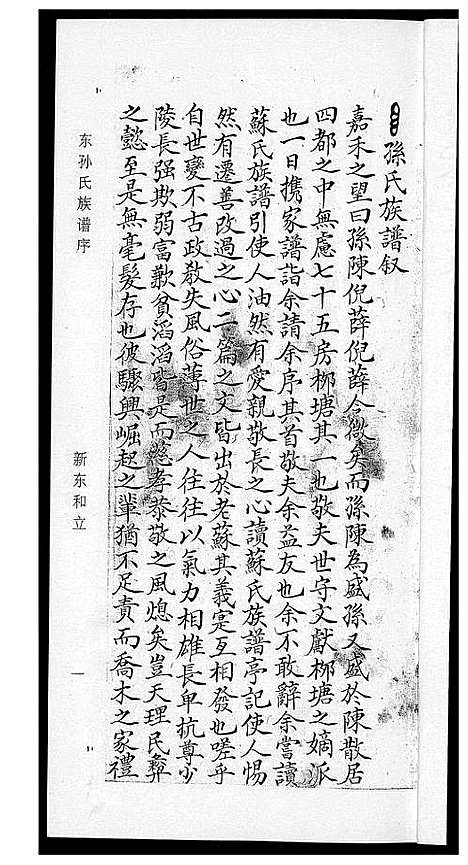 孫氏族譜叙
嘉禾之望曰孫陳倪薛倪薛今微矣而孫陳為盛孫又盛於陳散居
四都之中無慮七十五房栁塘其一也敬夫世守文獻栁塘之嫡派
也一日携家譜詣余請余序其首敬夫余益友也余不敢辭余嘗讀
蘇氏族譜引使人油然有愛親敬長之心讀蘇氏族譜亭記使人惕
然有遷善改過之心二篇之文皆出於老蘇其義寔互相發也嗟乎
自世變不古政教失風俗薄世之人往往以氣力相雄長卑抗尊少
陵長强欺弱富歉貧滔滔皆是而慈孝恭敬之風熄矣豈天理民彜
之懿至是無毫髮存也彼驟興崛起之輩猶不足責而喬木之家禮
东孙氏族谱序
新东和立
一